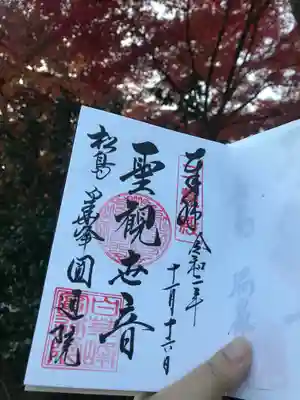 奉拝
令和二年
十一月十六日
聖観世音
松島
白華峰圓通院